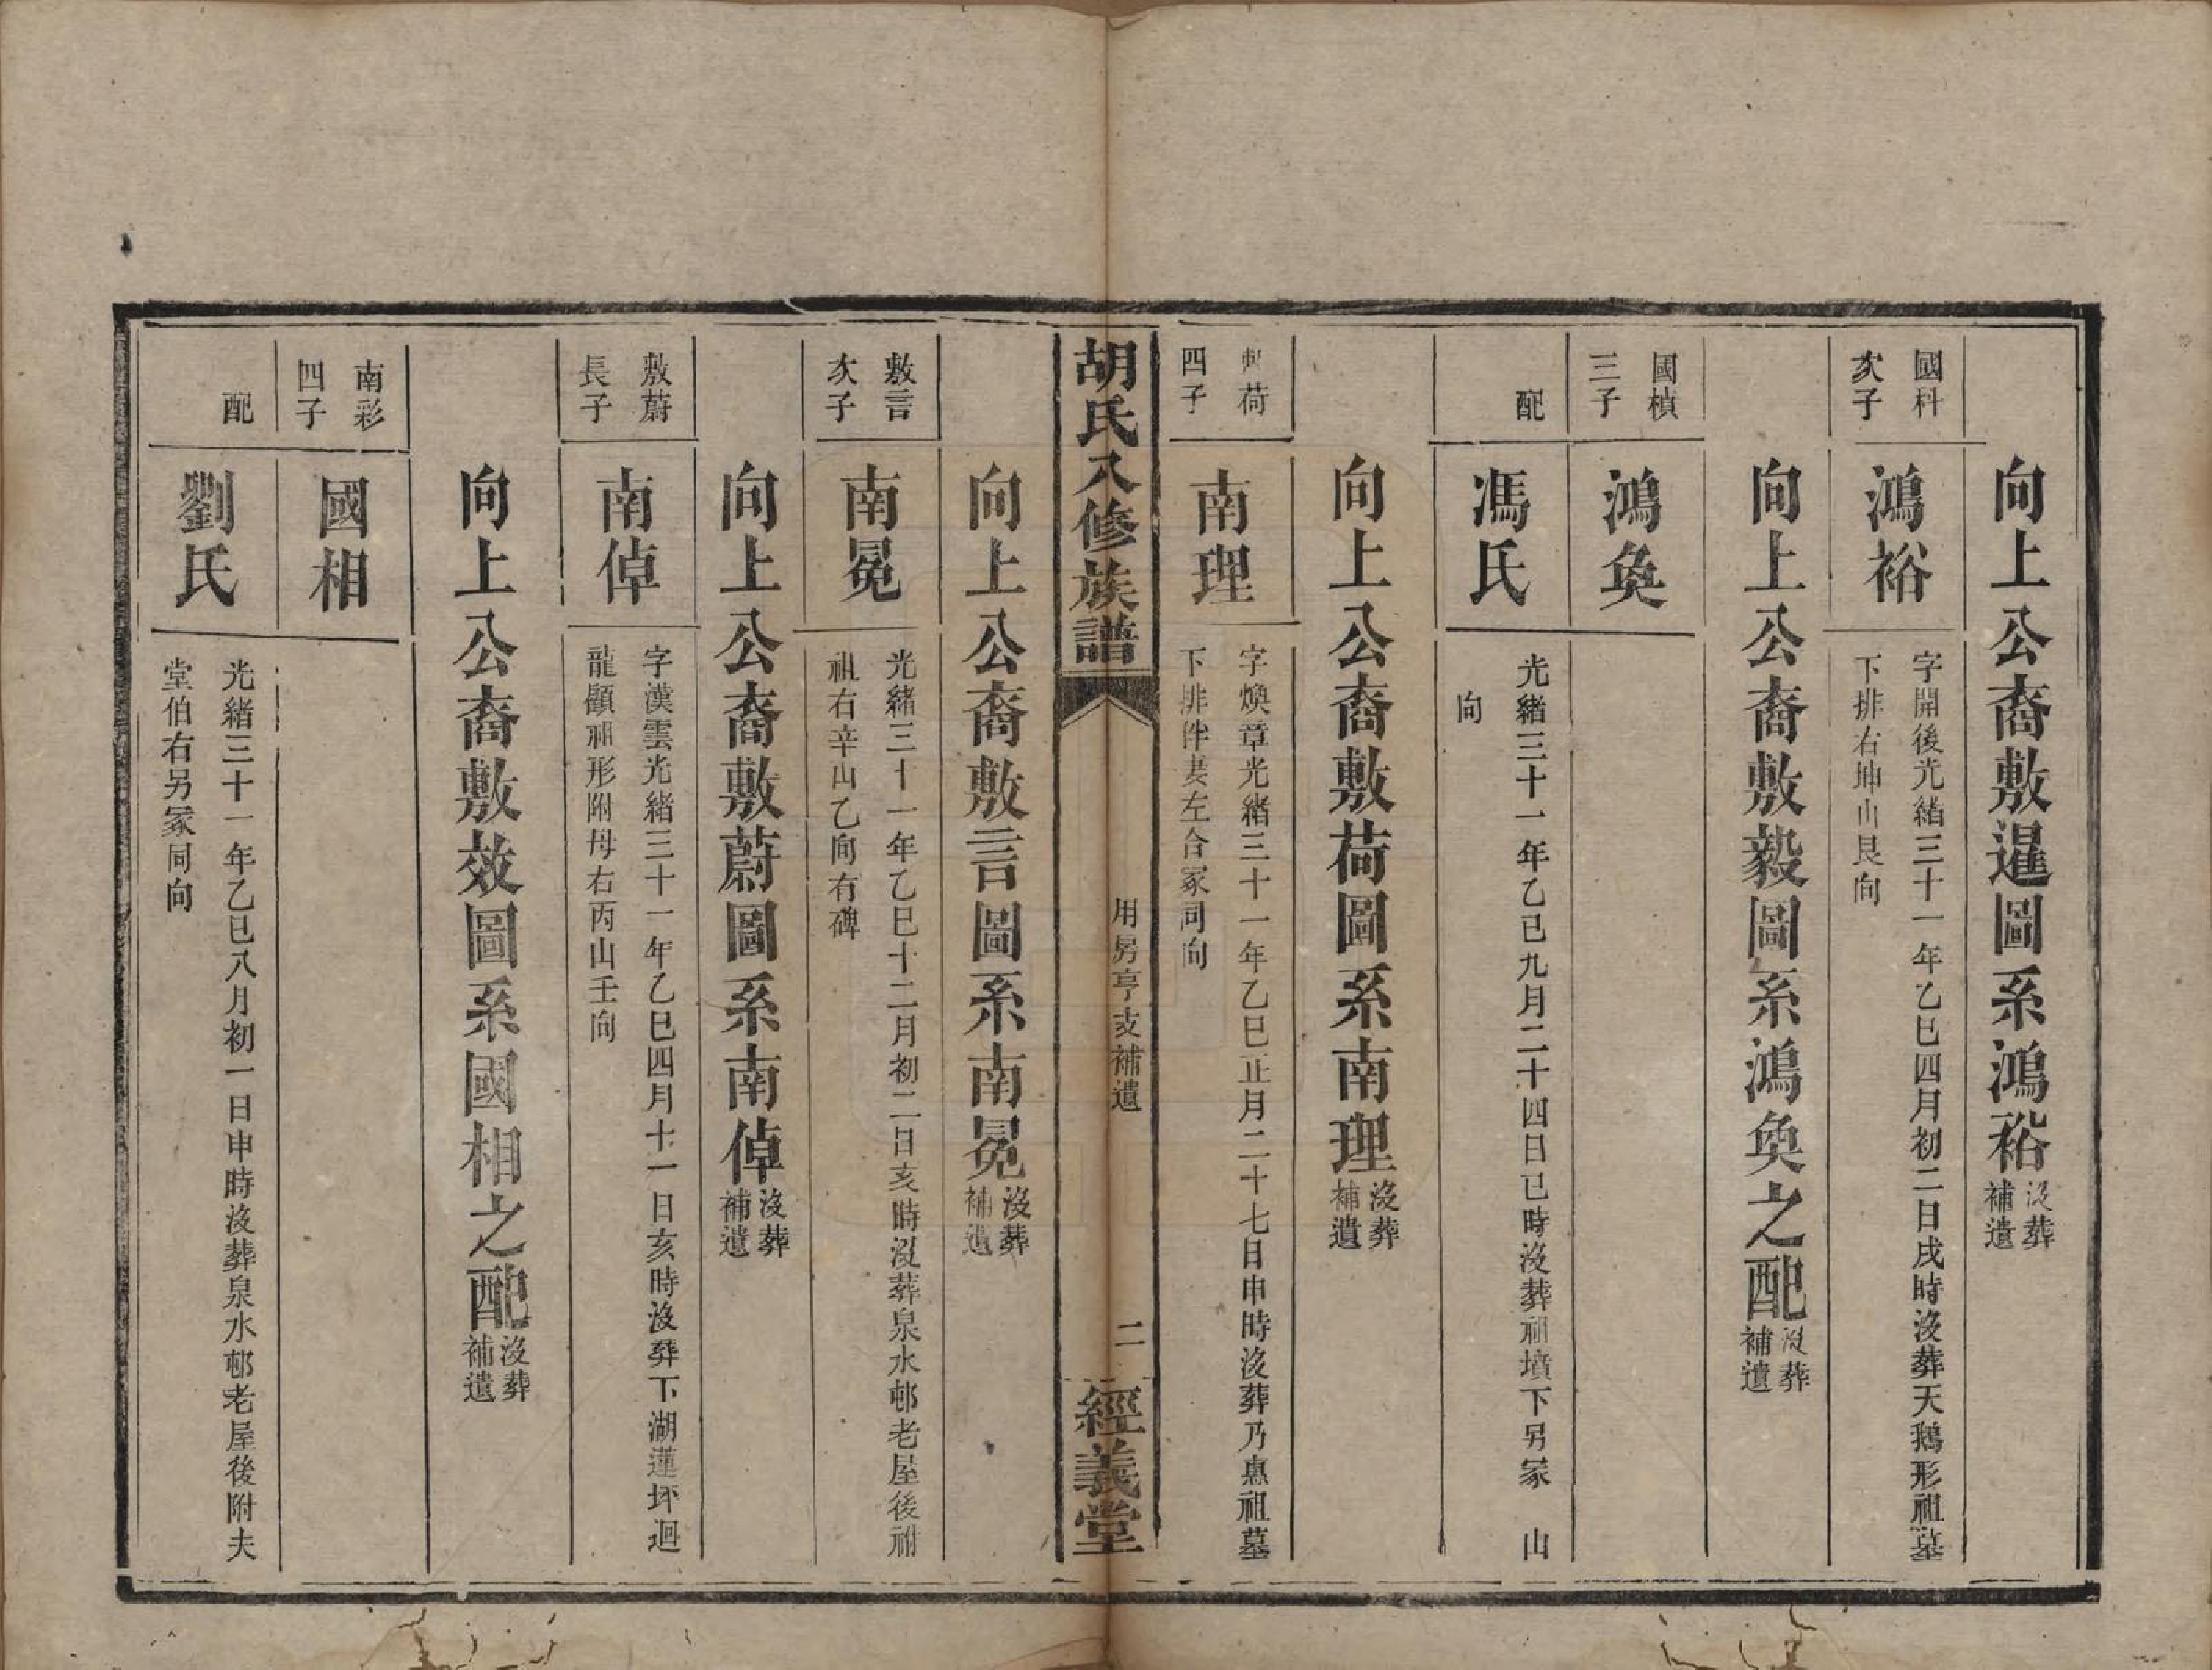 向上公裔敷暹圖系鴻裕沒葬補遺
國科次子
鴻裕
字開後光緒三十一年乙巳四月初二日戌時沒葬天鵝形祖墓
下排右坤山艮向
向上公裔敷毅圖系鴻奐之配沒葬補遺
國楨三子
鴻奐
配
馮氏
光緒三十一年乙巳九月二十四日巳時沒葬祖墳下另冢 山
向
向上公裔敷荷圖系南理沒葬補遺
敷荷四子
南理
字煥章光緒三十一年乙巳正月二十七日申時沒葬乃惠祖墓
下排伴妻左合冢同向
胡氏八修族譜
用房亨支補遺
二
經義堂
向上公裔敷言圖系南冕沒葬補遺
敷言次子
南冕
光緒三十一年乙巳十二月初二日亥時沒葬泉水邨老屋後祔
祖右辛山乙向有碑
向上公裔敷蔚圖系南倬沒葬補遺
敷蔚長子
南倬
字漢雲光緒三十一年乙巳四月十一日亥時沒葬下湖蓮坏迴
龍顧祖形附母右丙山壬向
向上公裔敷效圖系國相之配沒葬補遺
南彩四子
國相
配
劉氏
光緒三十一年乙巳八月初一日申時沒葬泉水邨老屋後附夫
堂伯右另冢同向